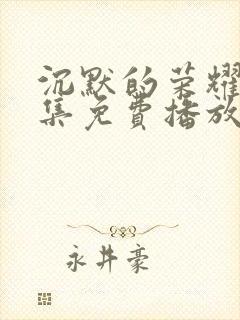 沉默的荣耀
集免费播放
永井豪